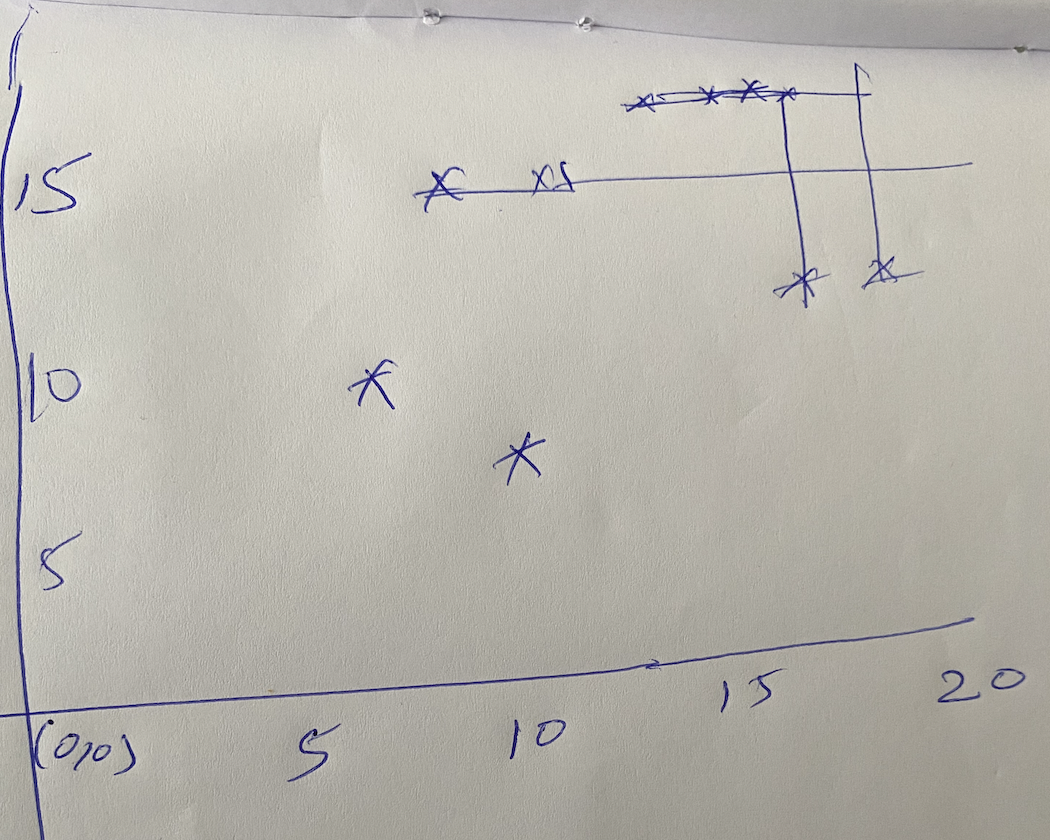 15
10
5
(0,0) 5 10 15 20